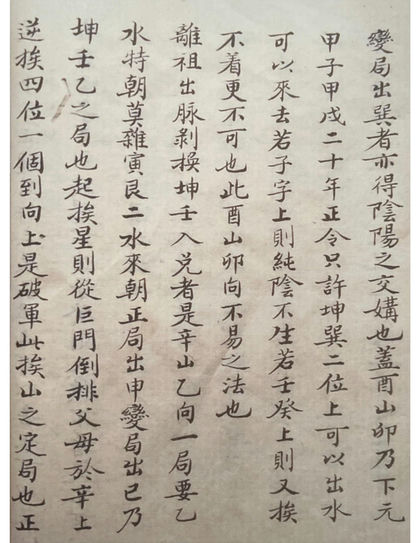 變局出巽者亦得陰陽之交媾也蓋酉山卯乃下元
甲子甲戌二十年正令只許坤巽二位上可以出水
可以來去若子字上則純陰不生若壬癸上則又挨
不着更不可也此酉山卯向不易之法也
離祖出脉剝換坤壬入兑者是辛山乙向一局要乙
水特朝莫雜寅艮二水來朝正局出申變局出巳乃
坤壬乙之局也起挨星則從巨門倒排父母於辛上
逆挨四位一個到向上是破軍此挨山之定局也正